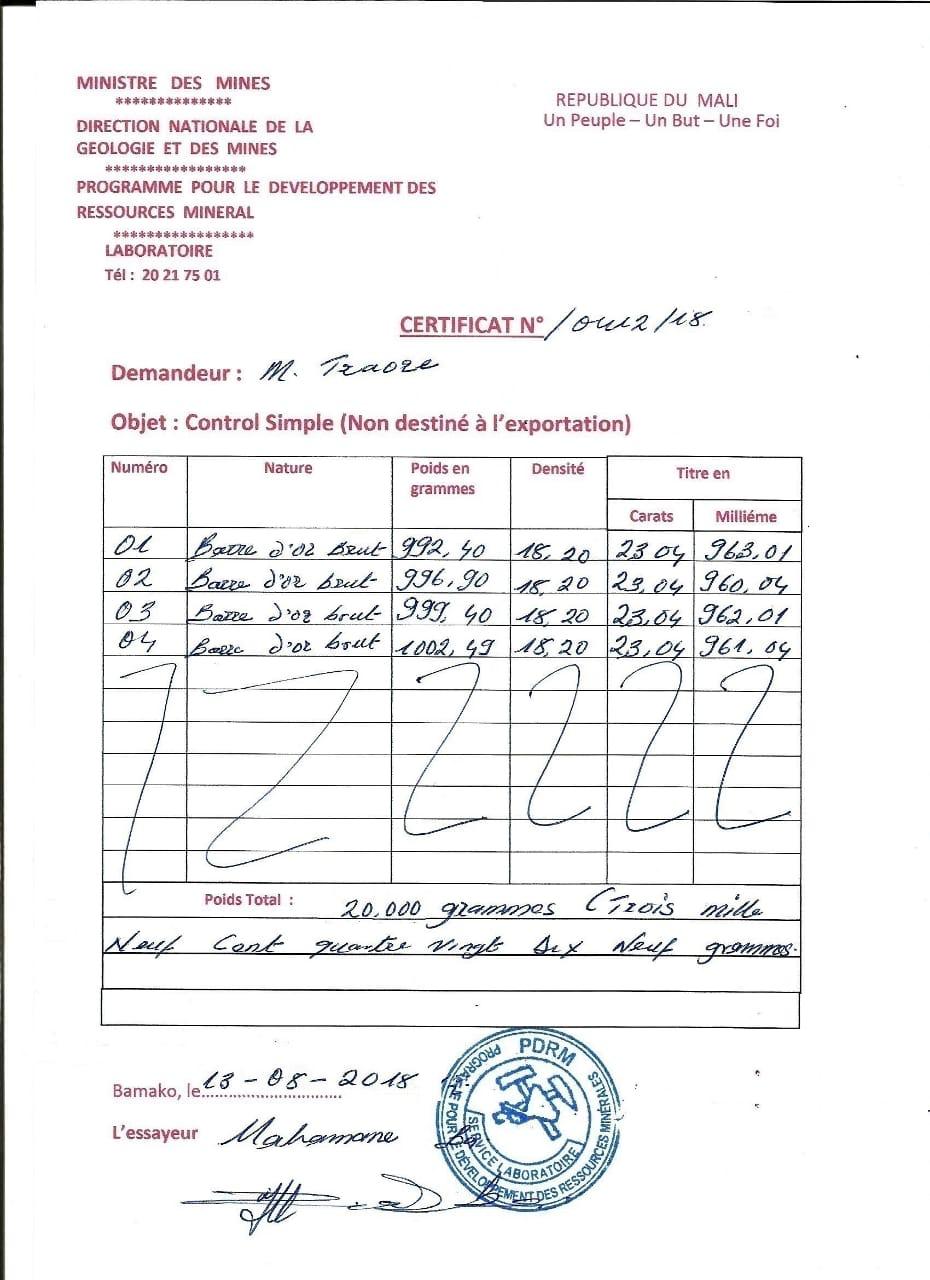 MINISTRE DES MINES
**************
DIRECTION NATIONALE DE LA
GEOLOGIE ET DES MINES
*****************
PROGRAMME POUR LE DEVELOPPEMENT DES
RESSOURCES MINERAL
*****************
LABORATOIRE
Tél : 20 21 75 01
REPUBLIQUE DU MALI
Un Peuple – Un But – Une Foi
CERTIFICAT N° /18
Demandeur : M. Traore
Objet : Control Simple (Non destiné à l'exportation)
Numéro Nature Poids en grammes Densité Titre en
Carats Milliéme
01 Barre d'or Brut 992,40 18,20 23 04 963,01
02 Barre d'or brut 996,90 18,20 23,04 960,04
03 Barre d'or brut 999,40 18,20 23,04 962,01
04 Barre d'or brut 1002,49 18,20 23,04 961,04
Poids Total : 20,000 grammes (Trois mille
Neuf Cent quatre vingt dix Neuf grammes.
Bamako, le 13-08-2018
L'essayeur Mahamane
PDRM
PROGRAMME POUR LE DÉVELOPPEMENT DES RESSOURCES MINÉRALES
SERVICE LABORATOIRE